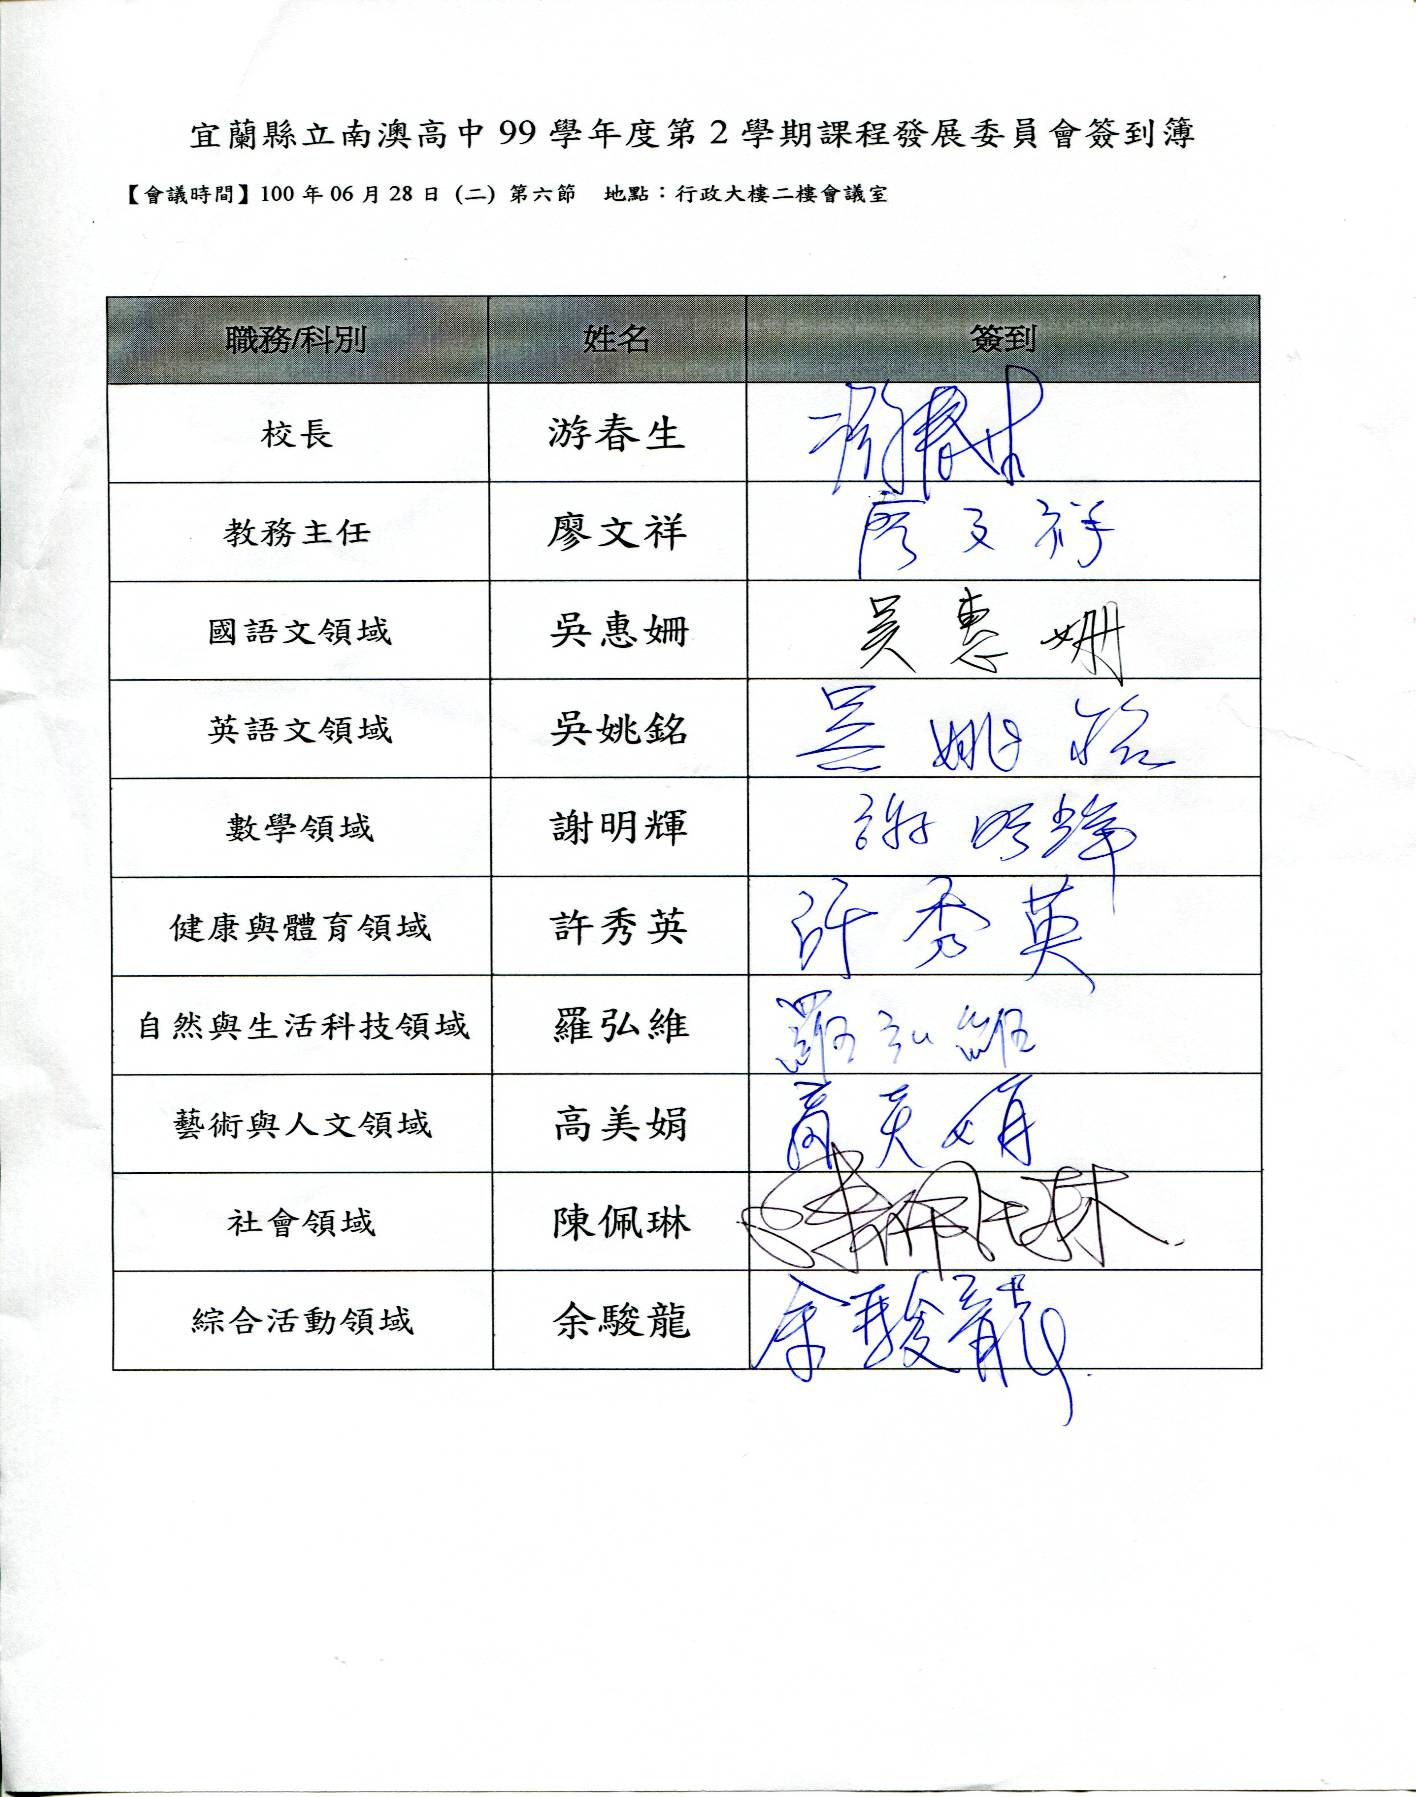 宜蘭縣立南澳高中 99 學年度第 2 學期課程發展委員會簽到簿
【會議時間】100 年 06 月 28 日 (二) 第六節 地點：行政大樓二樓會議室
職務/科別 姓名 簽到
校長 游春生 游春生
教務主任 廖文祥 廖文祥
國語文領域 吳惠姍 吳惠姍
英語文領域 吳姚銘 吳姚銘
數學領域 謝明輝 謝明輝
健康與體育領域 許秀英 許秀英
自然與生活科技領域 羅弘維 羅弘維
藝術與人文領域 高美娟 高美娟
社會領域 陳佩琳 陳佩琳
綜合活動領域 余駿龍 余駿龍